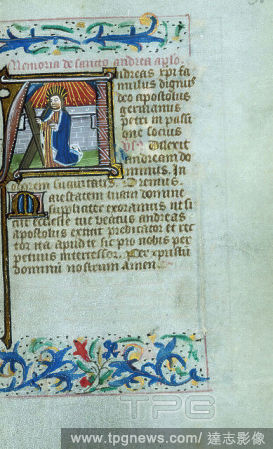 Memoria de sancto andrea aplo.
Andreas xpi fa
mulus dignus
dei apostolus
germanus
petri in passi
one socius
Dilexit
andream do
minus. In
odorem suauitatis. Oremus.
Maiestatem tuam domine
suppliciter exoramus ut si
cut ecclesie tue beatus andreas
apostolus extitit predicator et rec
tor ita apud te sit pro nobis per
petuus intercessor. Per xpistū
dominū nostrum Amen.
TPG
www.tpgnews.com/達志影像